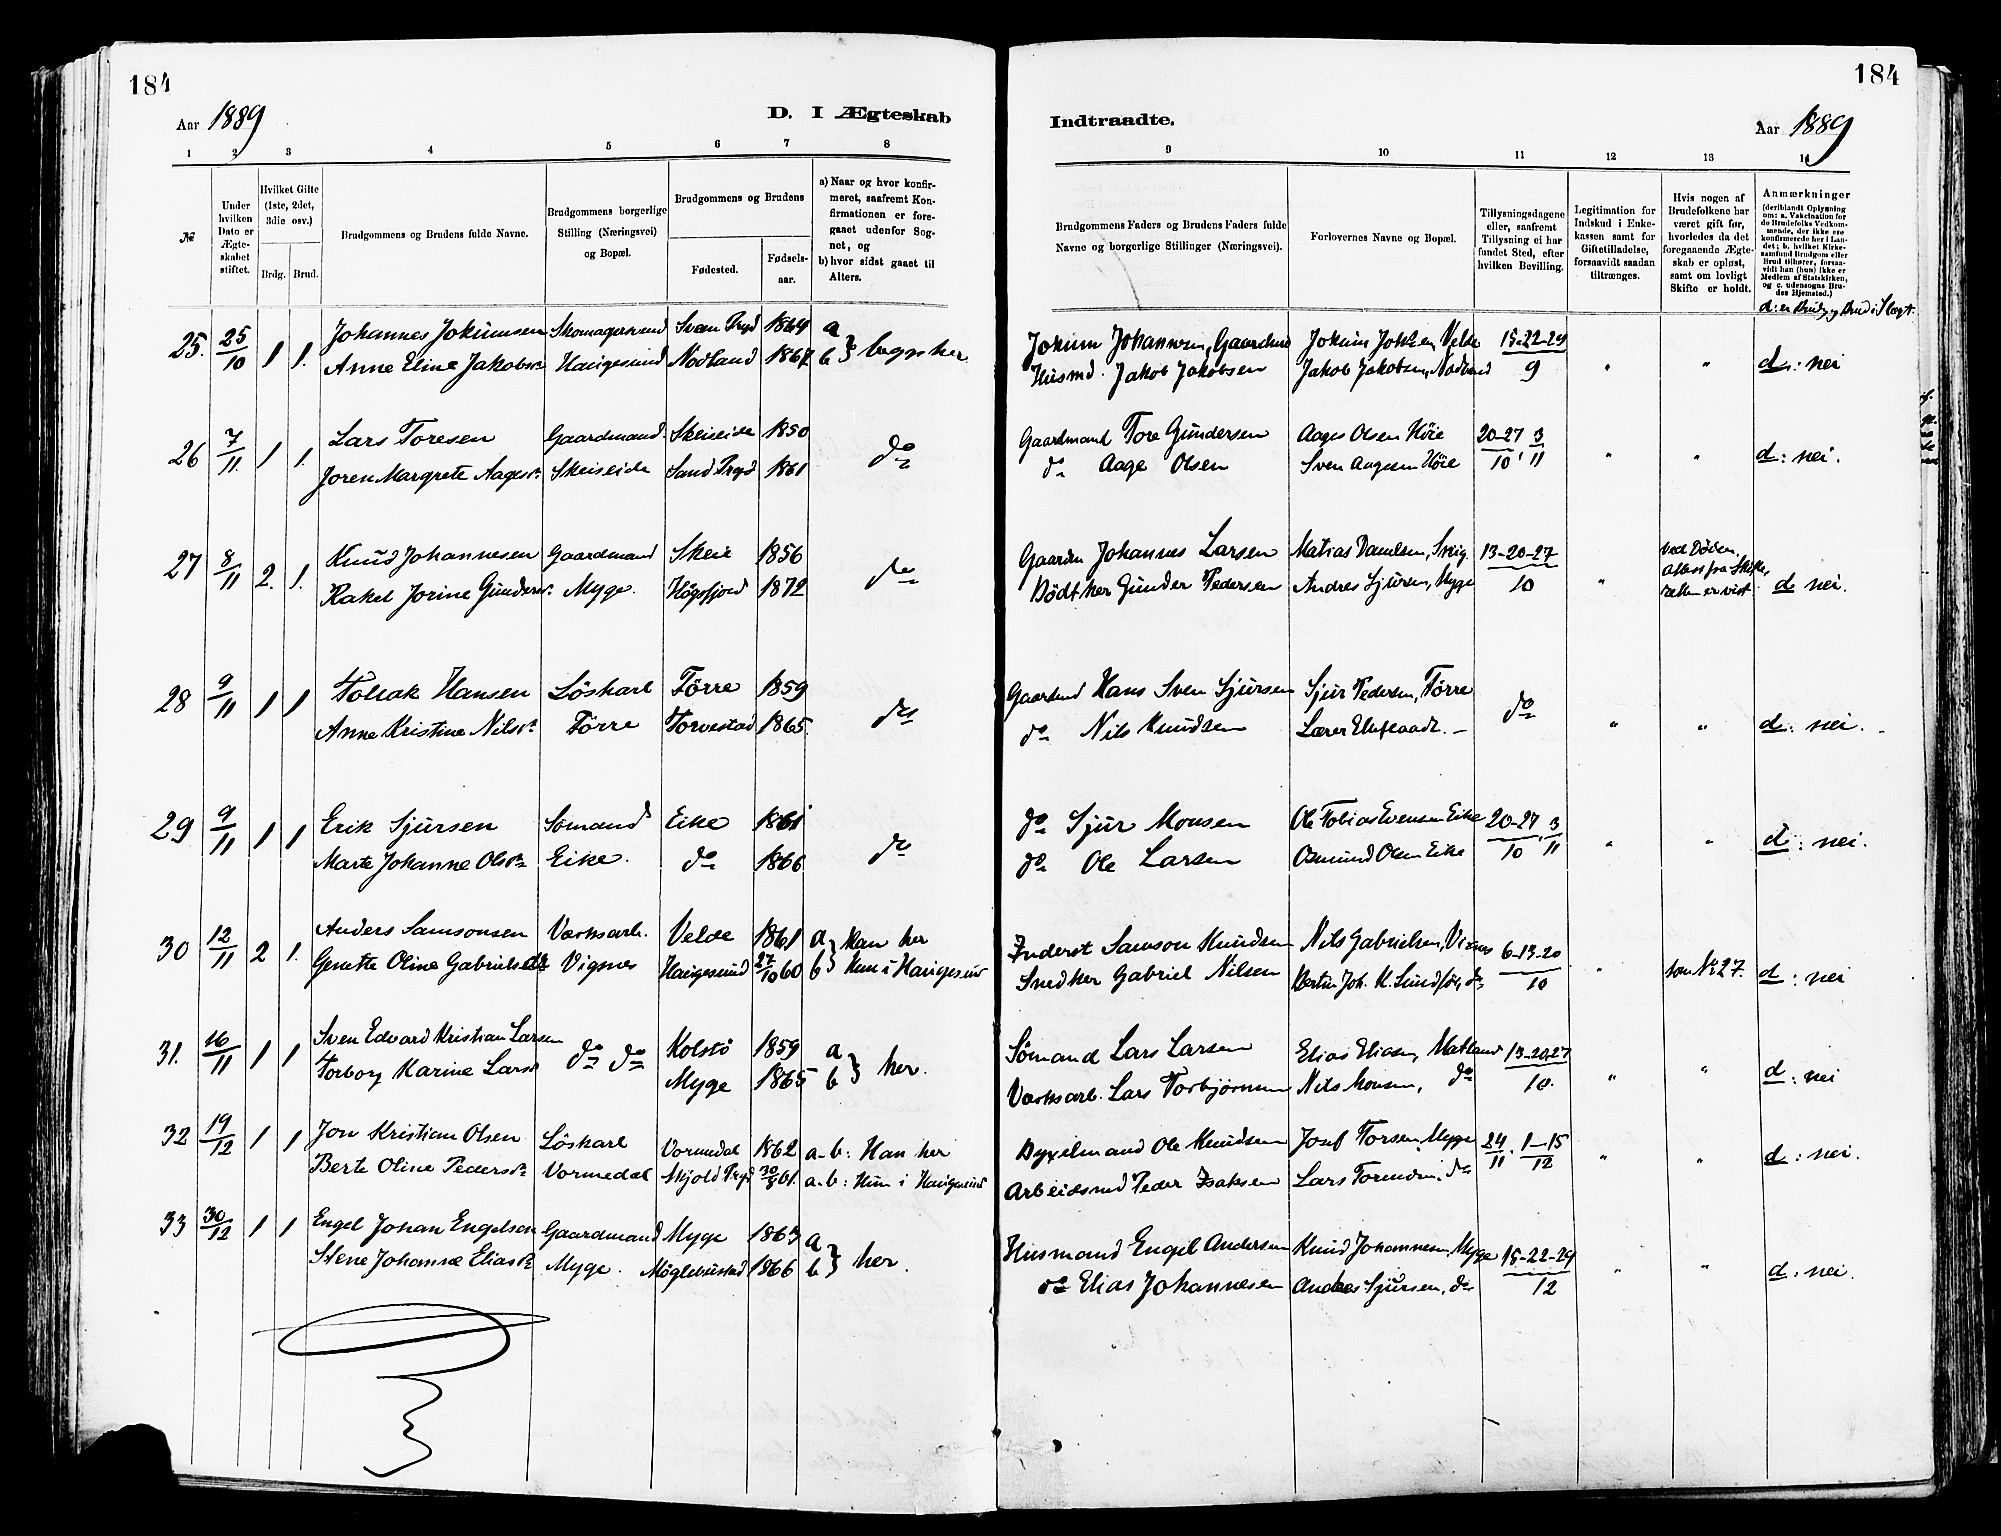 184
184
Aar 1889
D. I Ægteskab
Indtraadte.
Aar 1889
1 2 3 4 5 6 7 8
9 10 11 12 13 14
№
Under hvilken Dato er Ægteskabet stiftet.
Hvilket Gifte (1ste, 2det, 3die osv.)
Brdg. Brud.
Brudgommens og Brudens fulde Navne.
Brudgommens borgerlige Stilling (Næringsvei) og Bopæl.
Brudgommens og Brudens
Fødested.
Fødselsaar.
a) Naar og hvor konfirmeret, saafremt Konfirmationen er foregaaet udenfor Sognet, og
b) hvor sidst gaaet til Alters.
Brudgommens Faders og Brudens Faders fulde Navne og borgerlige Stillinger (Næringsvei).
Forlovernes Navne og Bopæl.
Tillysningsdagene eller, saafremt Tillysning ei har fundet Sted, efter hvilken Bevilling.
Legitimation for Indskud i Enkekassen samt for Giftetilladelse, forsaavidt saadan tiltrænges.
Hvis nogen af Brudefolkene har været gift før, hvorledes da det foregaaende Ægteskab er opløst, samt om lovligt Skifte er holdt.
Anmærkninger
(deriblandt Oplysning om: a. Vakcination for de Brudefolks Vedkommende, der ikke ere konfirmerede her i Landet; b. hvilket Kirkesamfund Brudgom eller Brud tilhører, forsaavidt han (hun) ikke er Medlem af Statskirken, og c. udensogns Brudes Hjemsted.)
d: er Brudg. og Brud i Slægt.
25. 25/10 1 1. Johannes Jokumsen Skomagersvend Sveen Tryd 1864 a Jokum Johannesen, Gaardmd Jokum Johsen, Velde 15-22-29
Anne Eline Jakobsdr Haugesund Nodland 1867 b } begge her Husmd. Jakob Jakobsen Jakob Jakobsen, Nodland 9 " " d: nei
26 7/11 1 1. Lars Toresen Gaardmand Skeiseide 1850 do Gaardmand Tore Gundersen Aage Olsen Høie 20-27/10, 3/11
Joren Margrete Aagesdr Skeiseide Sand Tryd 1861 do Aage Olsen Sven Aagesen Høie " " d: nei.
27 8/11 2. 1. Knud Johannesen Gaardmand Skeie 1856 do Gaardm Johannes Larsen Matias Danilsen, 13-20-27 ved Døden.
Rakel Jorine Gundersdr. Myge. Høgsfjord 1872 Dødt her Gunder Pedersen Andres Sjursen, Myge 10 " Attest fra Skifteretten er vist. d nei.
28 9/11 1 1 Tollak Hansen Løskarl Førre 1859 do Gaardmd Hans Sven Sjursen Sjur Pedersen, Førre do
Anne Kristine Nilsdr. Førre Torvestad 1865. do Nils Knudsen Lærer " " d: nei.
29 9/11 1 1 Erik Sjursen Sømand Eike 1861 do do Sjur Monsen Ole Tobias Evensen Eike 20-27/10, 3/11
Marte Johanne Olsdr Eike. do 1866 do Ole Larsen Osmund Olsen Eike " " d: nei.
30 12/11 2 1. Anders Samsonsen Værksarb. Velde 1861 a } Han her Inderst Samson Knudsen Nils Gabrielsen, Vignes 6-13-20
Genette Oline Gabrielsdtr Vignes Haugesund 27/10 60 b Hun i Haugesund Snedker Gabriel Nilsen Bertin Joh. K. Sundfør, do 10 " som № 27. d: nei
31. 16/11 1 1 Sven Edvard Kristian Larsen do do Kolstø 1859 a Sømand Lars Larsen Elias Eliasen, Matland 13-20-27
Torborg Karine Larsdr Myge 1865 b } her. Værksarb. Lars Torbjørnsen Nils Monsen, do 10. " " d: nei
32 19/12 1 1 Jon Kristian Olsen Løskarl Vormedal 1862 a-b: Han her Dyxelmand Ole Knudsen Josef Torsen, Myge 24/11. 1-15/12
Berte Oline Pedersdr. Vormedal Skjold Tryd 30/3 61. a-b: Hun i Haugesund Arbeidsmd Peder Isaksen Lars Toresen. do " " d: nei.
33 30/12 1 1 Engel Johan Engelsen Gaardmand Myge 1863 a Husmand Engel Andersen Knud Johannesen, Myge 15-22-29
Stene Johanne Eliasdr Myge. Møglebustad 1866 b } her. do Elias Johannesen Andreas Sjursen, do 12 " " d: nei.